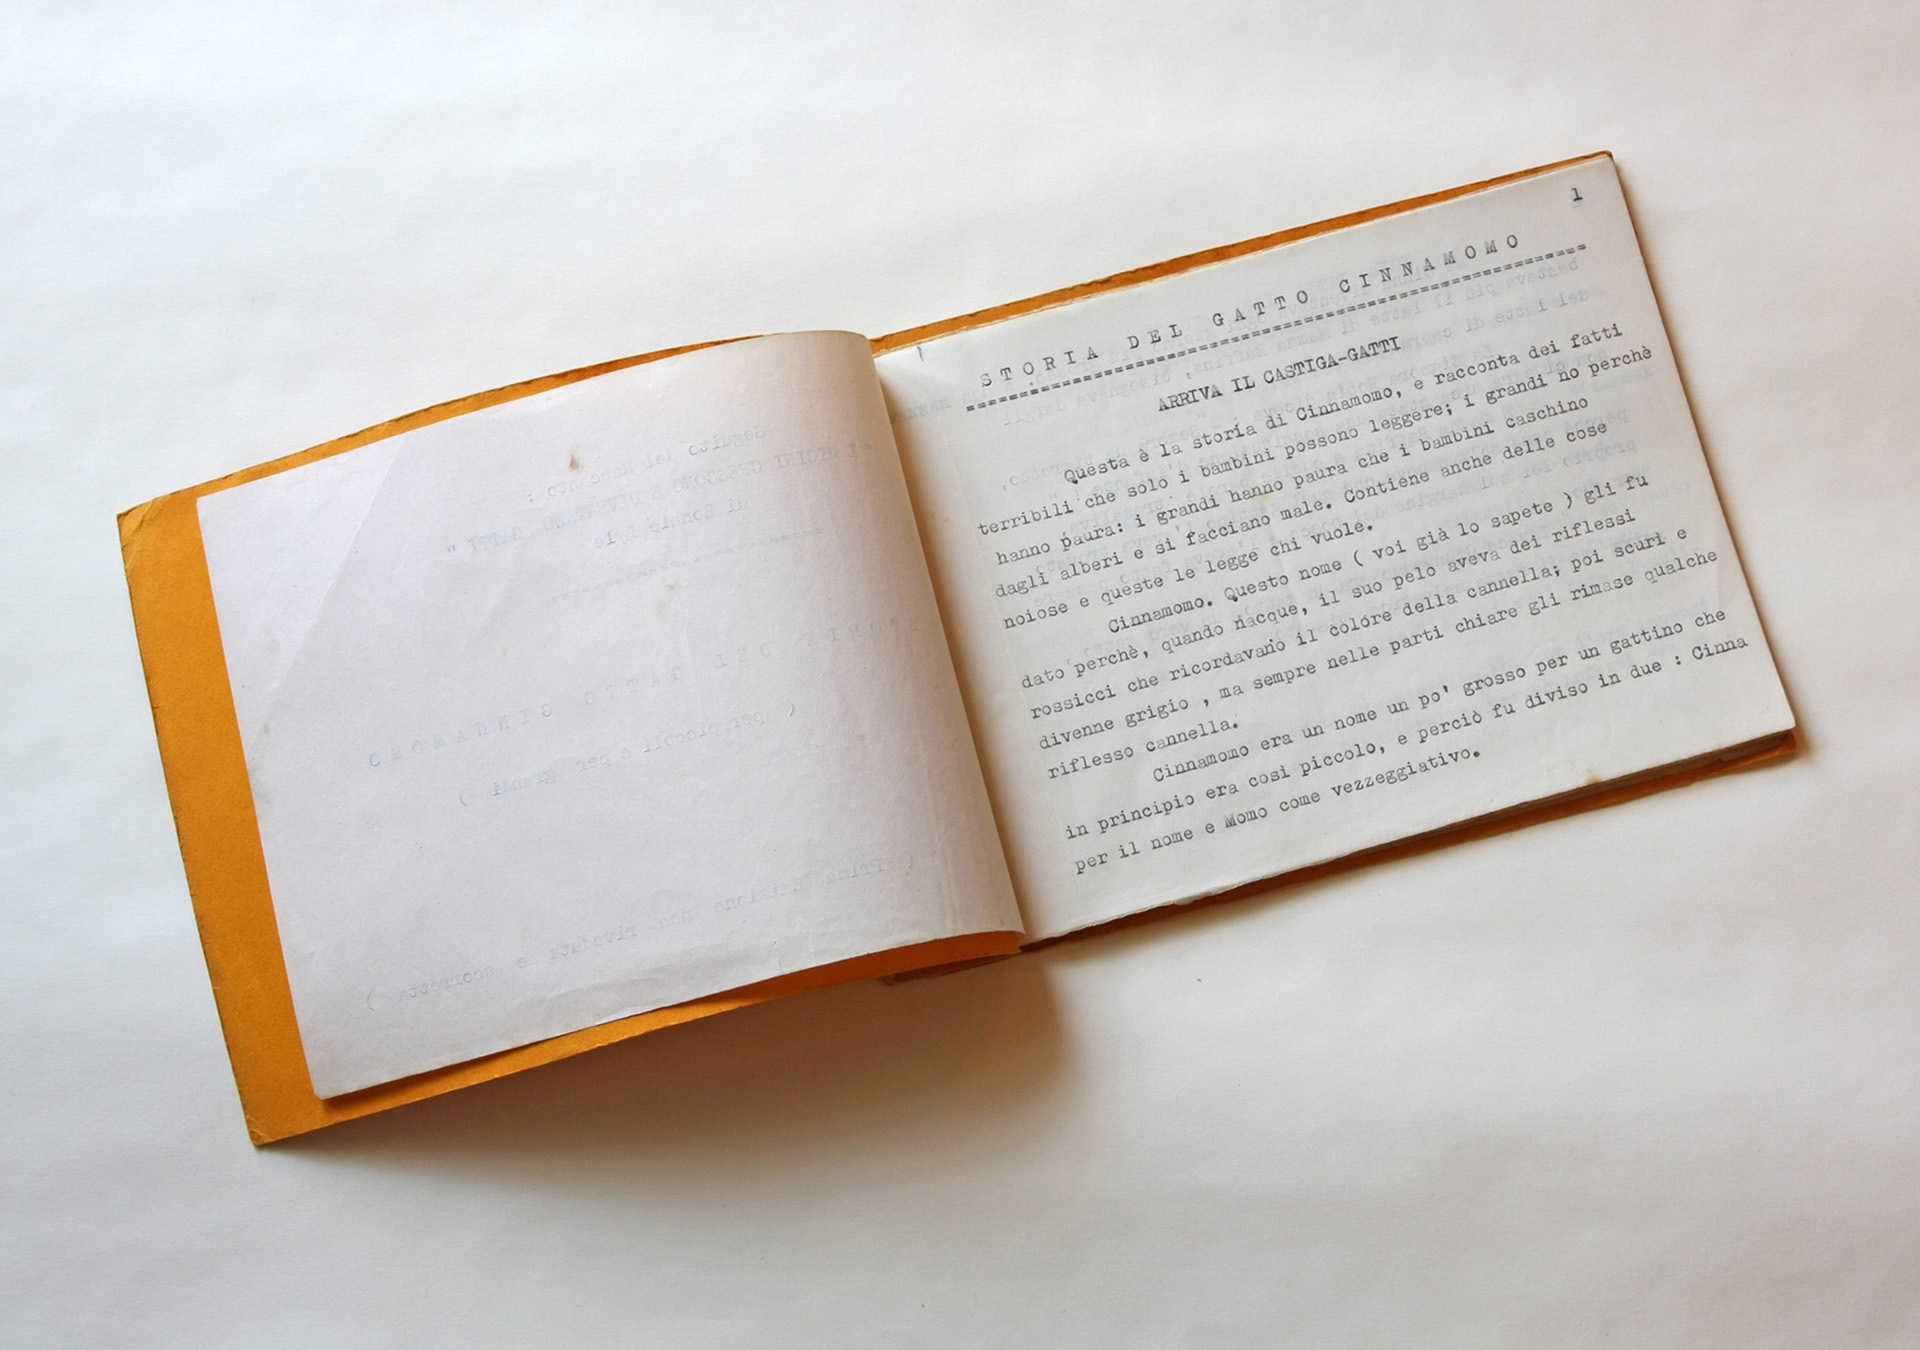 1
STORIA DEL GATTO CINNAMOMO
ARRIVA IL CASTIGA-GATTI
Questa è la storia di Cinnamomo, e racconta dei fatti
terribili che solo i bambini possono leggere; i grandi no perchè
hanno paura: i grandi hanno paura che i bambini caschino
dagli alberi e si facciano male. Contiene anche delle cose
noiose e queste le legge chi vuole.
Cinnamomo. Questo nome ( voi già lo sapete ) gli fu
dato perchè, quando nacque, il suo pelo aveva dei riflessi
rossicci che ricordavano il colore della cannella; poi scuri e
divenne grigio , ma sempre nelle parti chiare gli rimase qualche
riflesso cannella.
Cinnamomo era un nome un po' grosso per un gattino che
in principio era così piccolo, e perciò fu diviso in due : Cinna
per il nome e Momo come vezzeggiativo.